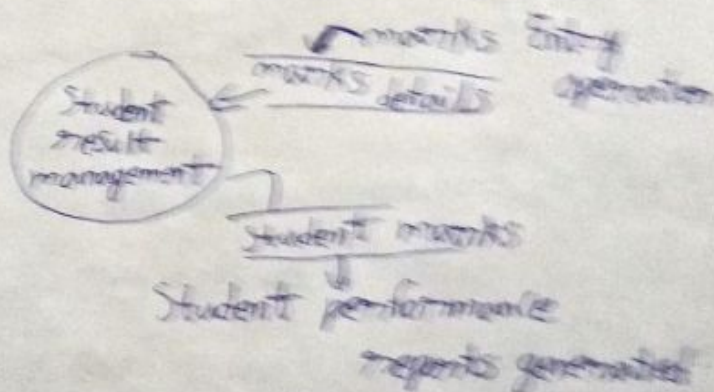 marks Entry
operation
marks details
Student
result
management
Student marks
Student performance
reports generated